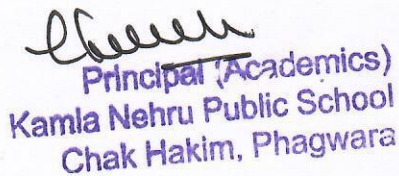 Principal (Academics)
Kamla Nehru Public School
Chak Hakim, Phagwara